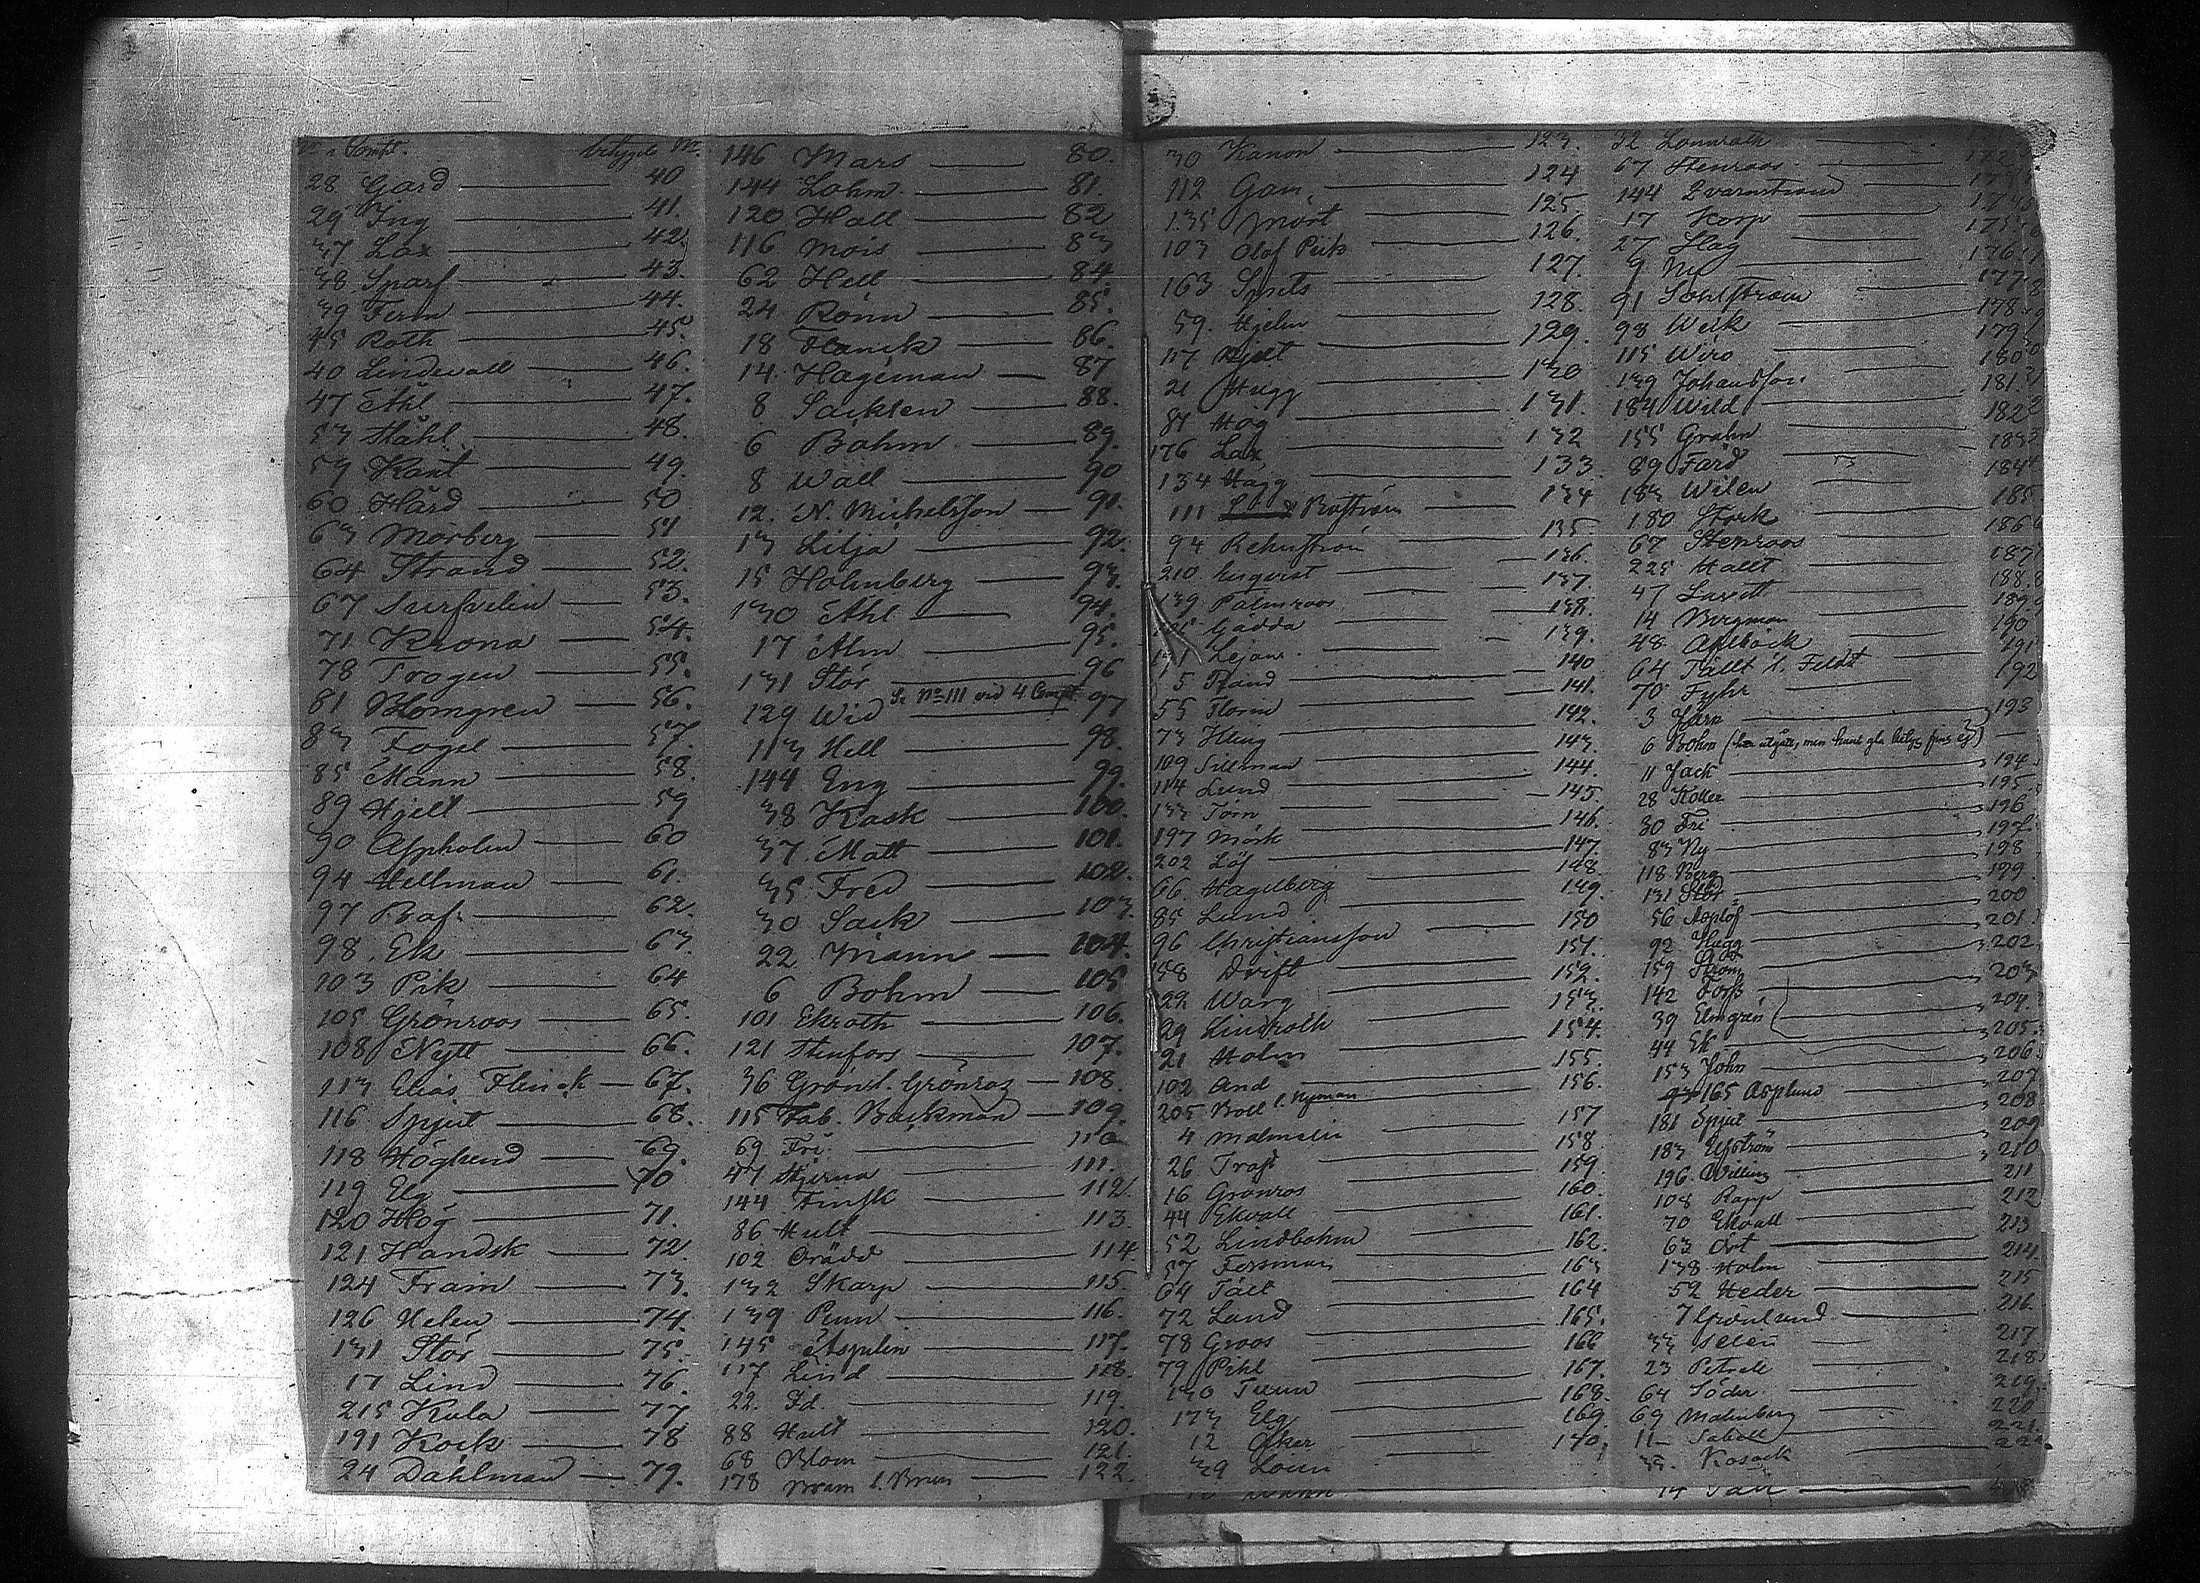 28 Gard 40
29 Ing 41.
37 Lax 42.
38 Sparf 43.
39 Ferm 44.
45 Roth 45.
40 Lindevall 46.
47 Ahl 47.
53 Ståhl 48.
59 Kant 49.
60 Hård 50
63 Mörberg 51
64 Strand 52.
67 53.
71 Krona 54.
78 Trogen 55.
81 Blomgren 56.
83 Fogel 57.
85 Mann 58.
89 Hjelt 59
90 Appholm 60
94 Hellman 61.
97 62.
98 Ek 63
103 Pik 64
105 Grönroos 65.
108 Nytt 66.
113 Elias Flinck 67.
116 Spjut 68.
118 Höglund 69.
119 Elg 70
120 Hög 71.
121 Handsk 72.
124 Fraim 73.
126 Helen 74.
131 Stör 75.
17 Lind 76.
215 Kula 77
191 Kock 78
24 Dahlman 79.
146 Mars 80.
144 Lohm 81.
120 Hall 82
116 Mois 83
62 Hell 84.
24 Rönn 85.
18 Flanck 86.
14. Hageman 87
8 Sacklen 88.
6 Böhm 89.
8 Wall 90
12. N. Michelsson 91.
13 Lilja 92.
15 Holmberg 93.
130 Ahl 94.
17 Alm 95.
131 Stör 96
129 Wid Se No 111 vid 4 Comp. 97
113 Hell 98.
144 Eng 99.
38 Kask 100.
37. Matt 101.
35 Fred 102.
30 Sack 103.
22 Mann 104.
6 Bohm 105
101 Ekroth 106.
121 Stenfors 107.
36 Grönst. Grönroz 108.
115 Fab. Backman 109.
69 Fri 110
47 Stjerna 111.
144 Finsk 112.
86 Hult 113.
102 Orädd 114
132 Skarp 115.
139 Penn 116.
145 Aspelin 117.
117 Lind 118.
22. Id. 119.
88 Hult 120.
68 Blom 121.
178 Bram l. Brun 122.
30 Kanon 123.
112 Gam 124
135 Mört 125
103 Olof Pick 126.
163 Spets 127.
59. Hjelm 128.
117 Hjelt 129.
21 Hugg 130
81 Hög 131.
176 Lax 132
134 Hägg 133
111 Boström 134
94 135
210 Enqvist 136.
139 Palmroos 137
Gädda 138.
Lejon 139.
5 140
55 Florin 141.
73 Kling 142.
109 Sillman 143
114 Lund 144.
Törn 145
197 Mörk 146.
202 Löf 147
66. Hagelberg 148.
85 Lund 149.
96 Christiansson 150
158 Drift 151.
22 Warg 152.
29 Lindroth 153.
21 Holm 154.
102 And 155.
205 Boll l. Nyman 156.
4 Malmelin 157
26 Trast 158.
16 Grönros 159.
44 Ekvall 160.
52 Lindbohm 161.
57 Forsman 162.
64 Tält 163
72 Land 164
78 Groos 165.
79 Pihl 166
130 Tunn 167.
173 Elg 168.
12 Åker 169.
39 Lönn 170.
32 Lönnroth
67 Stenroos
144 Qvarnstrand
17 Korp
27 Flag
9 Ny
91 Sohlström
98 Weik
115 Wiro
139 Johansson
184 Wild
155 Grahn
89 Färd
183 Wilen
180 Stork
67 Stenroos
225 Hallt
47
14 Bergman
48 Ahlbäck
64 Tållt l. Feldt 192
70 Fyhr
3 Järn 193
6 Bohm
11 Jack 194
28 Koller 195
30 Fri 196
83 Ny 197
118 Berg 198
131 Stör 199.
56 200
92 Hägg 201
159 Ström 202
142 Forss 203
39 Elmgren 204.
44 Ek 205.
153 John 206
165 Asplund 207
181 Spjut 208
183 Elfström 209
196 Willing 210
108 Rapp 211
70 Ekvall 212
63 Ört 213
138 Holm 214
52 Heder 215
7 Grönlund 216
33 Selen 217
23 Petrell 218
64 Söder 219
69 Malmberg 220
11 Sabell 221
Kosack 222